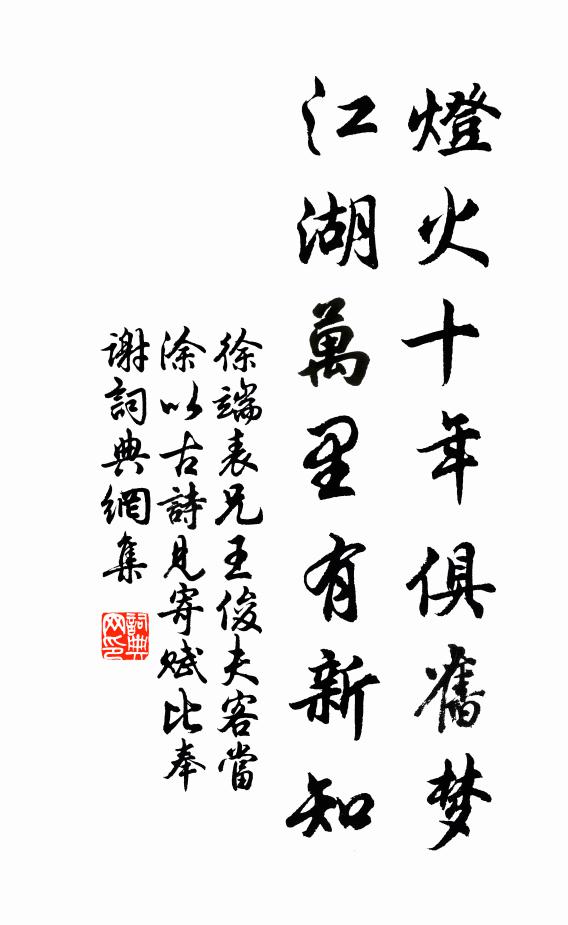 燈火十年俱舊梦
江湖萬里有新知
徐端表兄王俊夫客當
涂以古詩見寄赋比奉
谢詞典網集
詞典网印